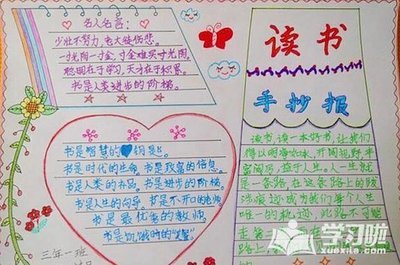 名人名言：
少壮不努力，老大徒伤悲。
一寸光阴一寸金，寸金难买寸光阴。
聪明在于学习，天才在于积累。
书是人类进步的阶梯。
读书
手抄报
书是智慧的钥匙。
书是时代的生命 书是致富的信息
书是人类的 书是进步的阶梯。
书是人生的向导 书是不开口的老师
书是最优秀的教师
书是饥饿时的
读书，读一本好书，让我们
得以明净如水，开阔视野，丰
富阅历，益于人生。人生就
是一条路，在这条路上的跋
涉痕迹成为我们每个人生
唯一的轨迹，此路不可
走第
路上
三年一班
学习啦
xuexila.com